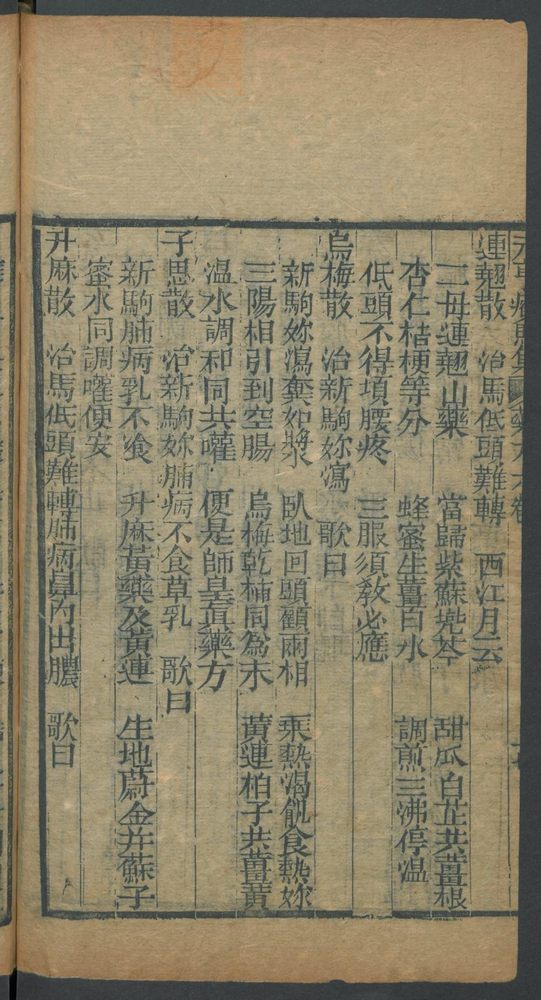 連翹散　治馬低頭難轉　西江月云
二母連翹山藥　當歸紫蘇兠苓　甜瓜白芷共薑根
杏仁桔梗等分　蜂蜜生薑百水　調煎三沸停温
低頭不得項腰疼　三服須教必應
烏梅散　治新駒妳瀉　歌曰
新駒妳瀉糞如漿　臥地回頭顧兩相　乘熱渴飢食熱妳
三陽相引到空腸　烏梅乾柿同為末　黄連柏子共薑黄
温水調和同共嚾　便是師皇真藥方
子思散　治新駒妳肺病不食草乳　歌曰
新駒肺病乳不飡　升麻黃藥及黃連　生地蔚金并蘇子
蜜水同調嚾便安
升麻散　治馬低頭難轉肺病鼻内出膿　歌曰